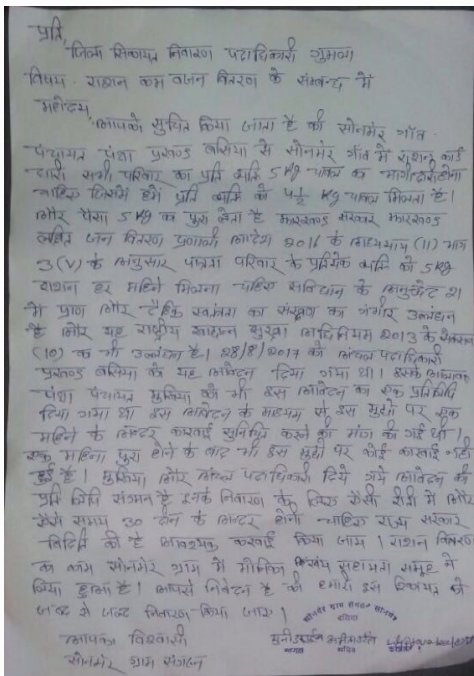 प्रति,
जिला सिकायत निवारण पदाधिकारी गुमला
विषय - राशन कम वजन वितरण के सम्बन्द मे
महोदय,
आपको सुचित किया जाता है की सोनमेर गाँव
पंचायत पंथा प्रखण्ड बसिया से सोनमेर गाँव में राशन कार्ड
धारी सभी परिवार का प्रति व्यक्ति 5 Kg चावल का भागीदारी होना
चाहिए जिसमें हमे प्रति व्यक्ति को 4½ Kg चावल मिलता है।
और पैसा 5 Kg का पुरा लेता है झारखण्ड सरकार झारखण्ड
लक्षित जन वितरण प्रणाली आदेश 2016 के अध्याय (11) भाग
3(V) के अनुसार पात्रता परिवार के प्रतियेक व्यक्ति को 5 kg
राशन हर महिने मिलना चाहिए संविधान के अनुच्छेद 21
में प्राण और दैहिक स्वतंत्रता का संरक्षण का गंभीर उल्लंघन
है और यह राष्ट्रीय खाद्यान सुरक्षा अधिनियम 2013 के
(10) का भी उल्लंघन है। 28/8/2017 को अंचल पदाधिकारी
प्रखण्ड बसिया को यह आवेदन दिया गया था। इसके अलावा
पंथा पंचायत मुखिया को भी इस आवेदन का एक प्रतिलिपि
दिया गया था इस आवेदन के माध्यम से इस मुद्दे पर एक
महिने के अन्दर कारवाई सुनिश्चित करने की मांग की गई थी।
एक महिना पुरा होने के बाद भी इस मुद्दे पर कोई कारवाई नहीं
हुई है। मुखिया और अंचल पदाधिकारी दिये गये आवेदन का
प्रति लिपि संलग्न है इनके निवारण के लिए जैसी रीती में और
जैसे समय 30 दीन के अन्दर होनी चाहिए राज्य सरकार
विहित की है आवश्यक कारवाई किया जाय। राशन वितरण
का काम सोनमेर ग्राम में सहायता समूह ने
लिया हुआ है। आपसे निवेदन है की हमारी इस शिकायत को
जल्द से जल्द निवारण किया जाए।
आपका विश्वासी
सोनमेर ग्राम संगठन